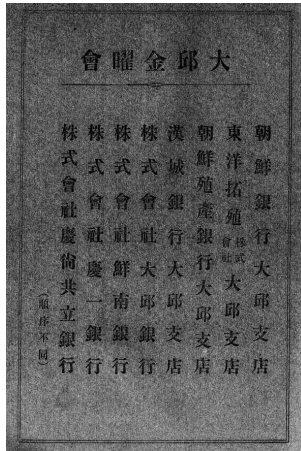 大邱金曜會
朝鮮銀行大邱支店
東洋拓殖株式會社大邱支店
朝鮮殖産銀行大邱支店
漢城銀行大邱支店
株式會社大邱銀行
株式會社鮮南銀行
株式會社慶一銀行
株式會社慶尙共立銀行
(順序不同)